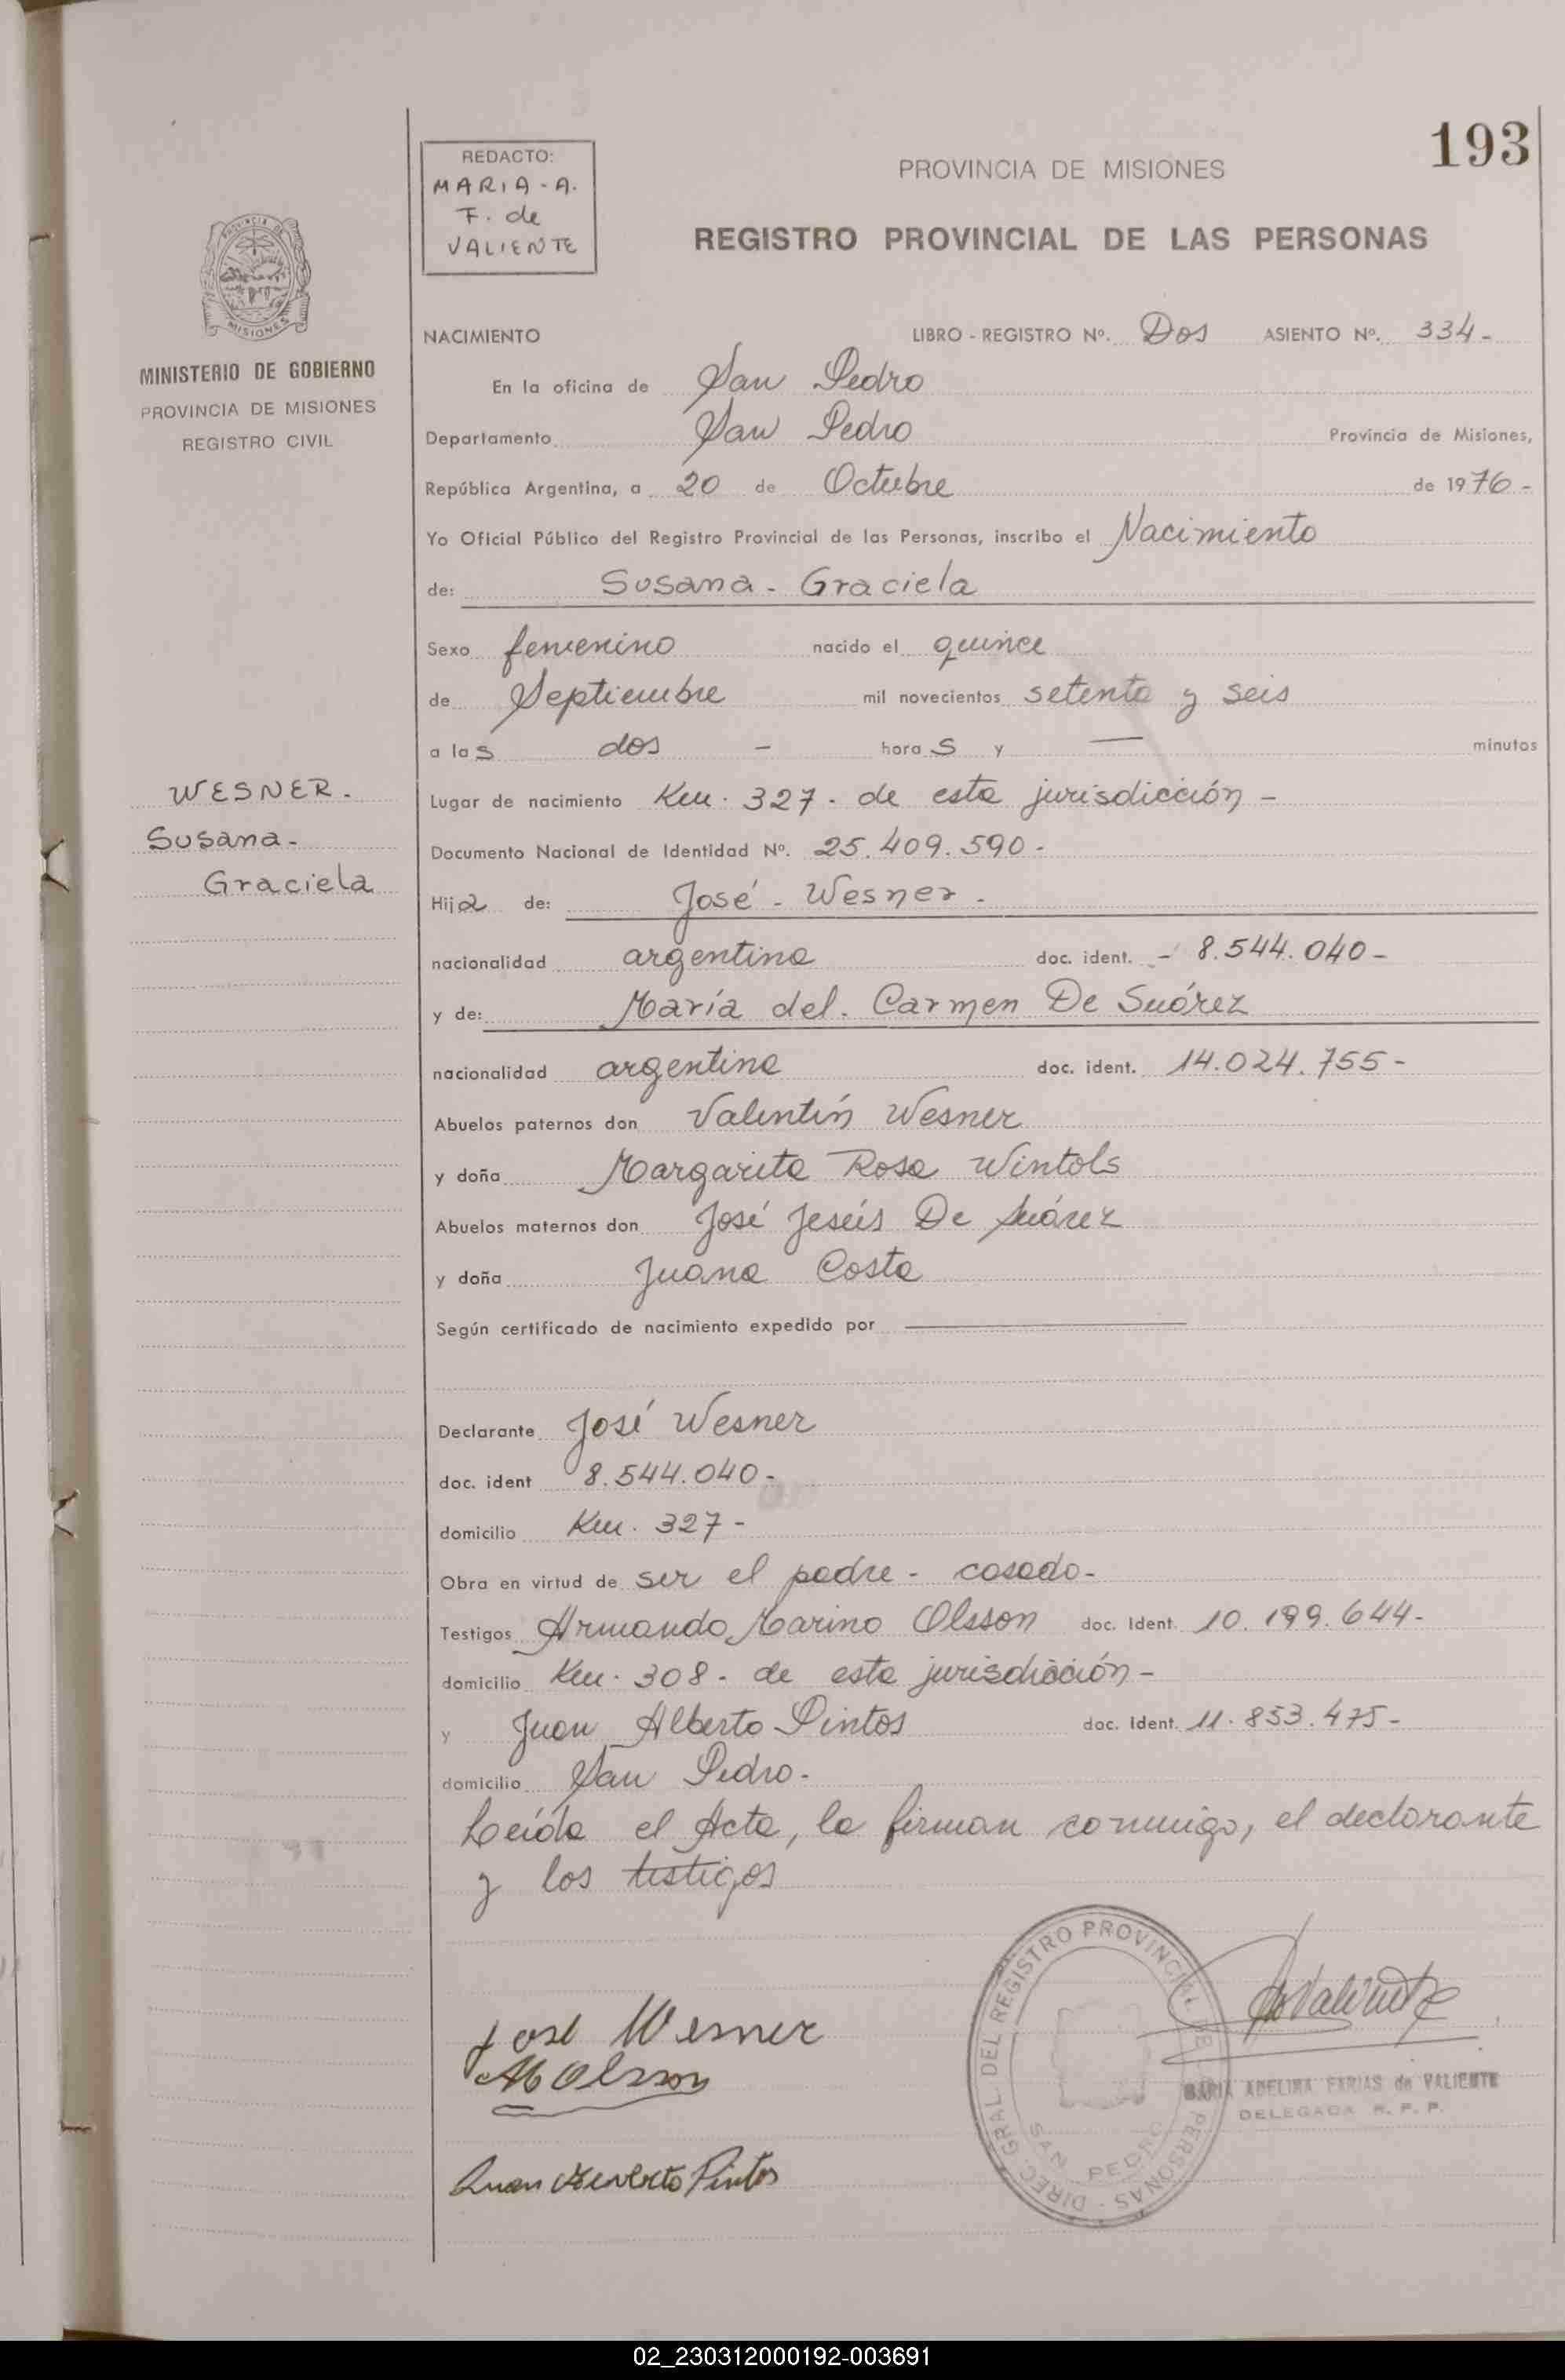 193
REDACTO:
MARIA-A.
F. de
VALIENTE
PROVINCIA DE MISIONES
REGISTRO PROVINCIAL DE LAS PERSONAS
PROVINCIA DE
MISIONES
MINISTERIO DE GOBIERNO
PROVINCIA DE MISIONES
REGISTRO CIVIL
NACIMIENTO LIBRO - REGISTRO Nº. Dos ASIENTO Nº. 334-
En la oficina de San Pedro
Departamento San Pedro Provincia de Misiones,
República Argentina, a 20 de Octubre de 1976-
Yo Oficial Público del Registro Provincial de las Personas, inscribo el Nacimiento
de: Susana - Graciela
Sexo femenino nacido el quince
de Septiembre mil novecientos setenta y seis
a las dos - horas y — minutos
WESNER.
Susana-
Graciela
Lugar de nacimiento Km. 327. de esta jurisdicción -
Documento Nacional de Identidad Nº. 25.409.590-
Hija de: José - Wesner.
nacionalidad argentina doc. ident. - 8.544.040-
y de: María del. Carmen De Suárez
nacionalidad argentina doc. ident. 14.024.755-
Abuelos paternos don Valentín Wesner
y doña Margarita Rosa Wintols
Abuelos maternos don José Jesús De Suárez
y doña Juana Costa
Según certificado de nacimiento expedido por ———
Declarante José Wesner
doc. ident 8.544.040-
domicilio Km. 327-
Obra en virtud de ser el padre - casado-
Testigos Armando Marino Olsson doc. Ident. 10.199.644-
domicilio Km. 308. de esta jurisdicción-
y Juan Alberto Pintos doc. Ident. 11.853.475-
domicilio San Pedro.
Leída el Acta, la firman conmigo, el declarante
y los testigos
José Wesner
AMOlsson
Juan Alberto Pintos
DIREC. GRAL. DEL REGISTRO PROVINCIAL DE PERSONAS -
SAN PEDRO
deValiente
MARIA ADELINA FARIAS de VALIENTE
DELEGADA R. P. P.
02_230312000192-003691